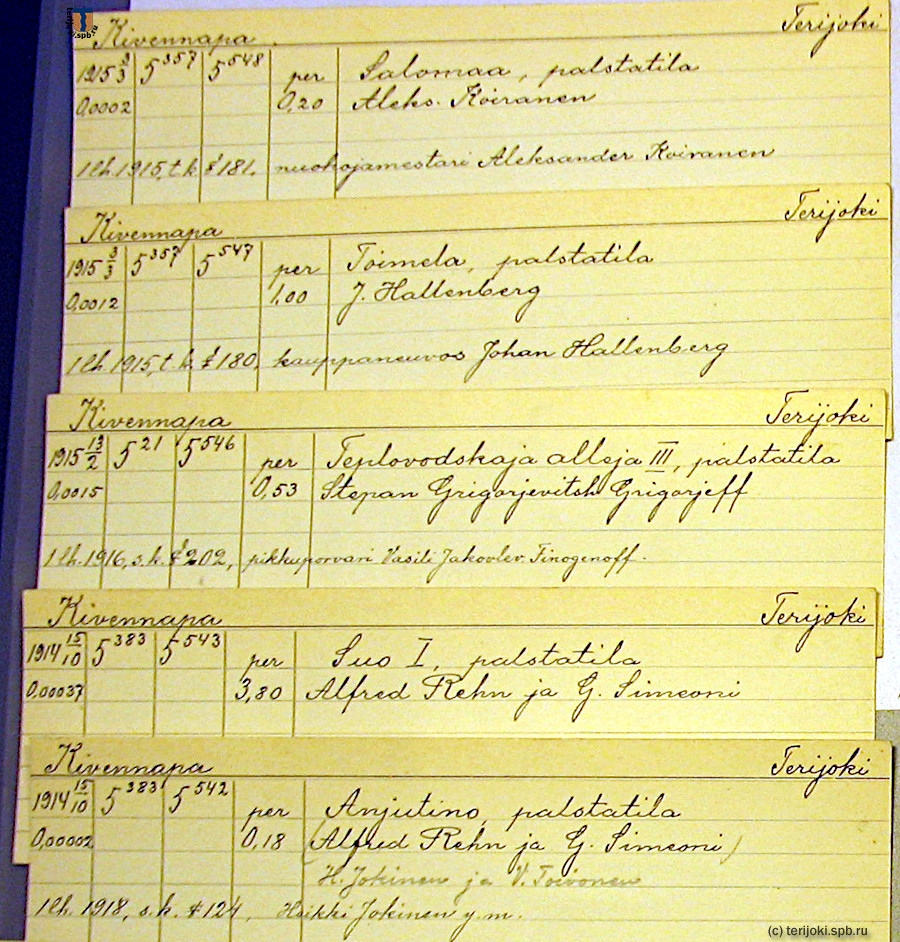 terijoki.spb.ru
Kivennapa. Terijoki
1915 3/3 5 357 5 548 per Salomaa, palstatila
0,0002 0,20 Aleks. Koiranen
1 lh. 1915, t.k. § 181. nuohojamestari Aleksander Koiranen
Kivennapa Terijoki
1915 3/3 5 357 5 547 per Toimela, palstatila
0,0012 1,00 J. Hallenberg
1 lh. 1915, t.k. § 180, kauppaneuvos Johan Hallenberg
Kivennapa Terijoki
1915 13/2 5 21 5 546 per Teplovodskaja alleja III, palstatila
0,0015 0,53 Stepan Grigorjevitsh Grigorjeff
1 lh. 1916, s.k. § 202, pikkuporvari Vasili Jakovlev. Finogenoff.
Kivennapa Terijoki
1914 15/10 5 383 5 543 per Suo I, palstatila
0,00037 3,80 Alfred Rehn ja G. Simeoni
Kivennapa Terijoki
1914 15/10 5 383 5 542 per Anjutino, palstatila
0,00002 0,18 (Alfred Rehn ja G. Simeoni)
H. Jokinen ja V. Toivonen
1 lh. 1918, s.k. § 124, Heikki Jokinen y.m.
(c) terijoki.spb.ru